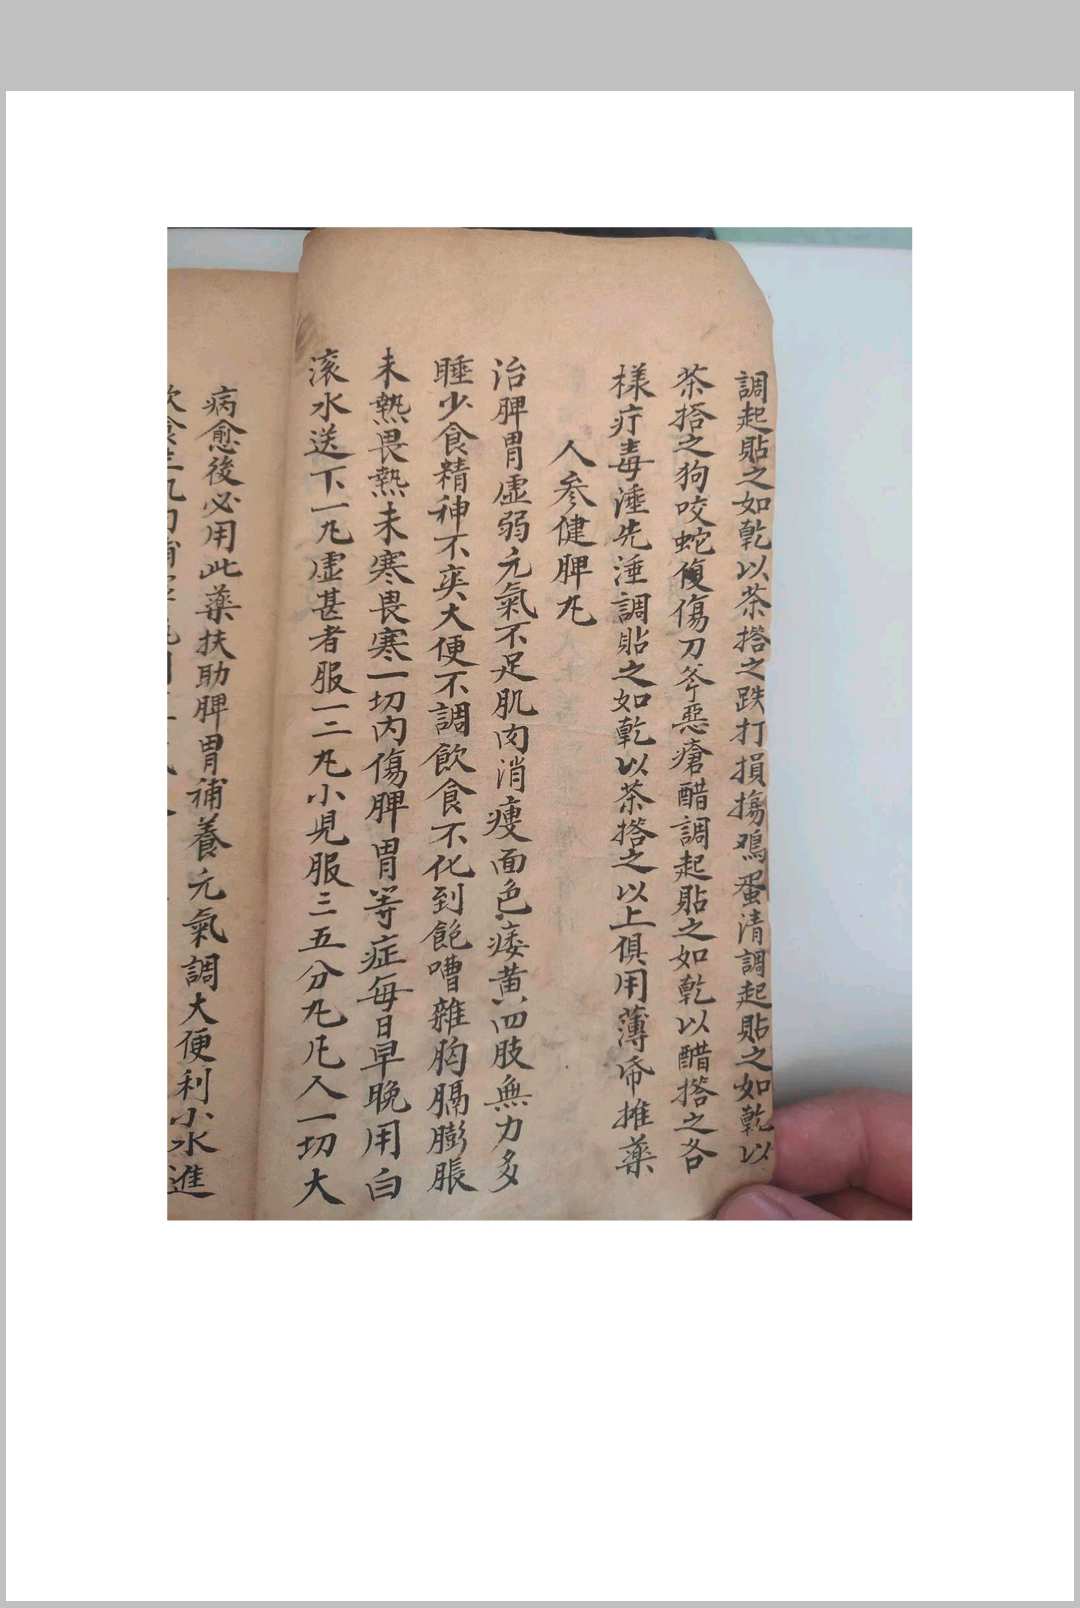 調起貼之如乾以茶搭之跌打損傷鳮蛋清調起貼之如乾以
茶搭之狗咬蛇傻傷刀斧惡瘡醋調起貼之如乾以醋搭之各
樣疔毒涶先涶調貼之如乾以茶搭之以上俱用薄帋摧藥
人参健脾丸
治脾胃虛弱元氣不足肌肉消瘦面色痿黄四肢無力多
睡少食精神不爽大便不調飲食不化到飽嘈雜胸膈膨脹
未熱畏熱未寒畏寒一切内傷脾胃等症每日早晚用白
滚水送下一丸虛甚者服一二丸小児服三五分丸凡人一切大
病愈後必用此藥扶助脾胃補養元氣調大便利小水進